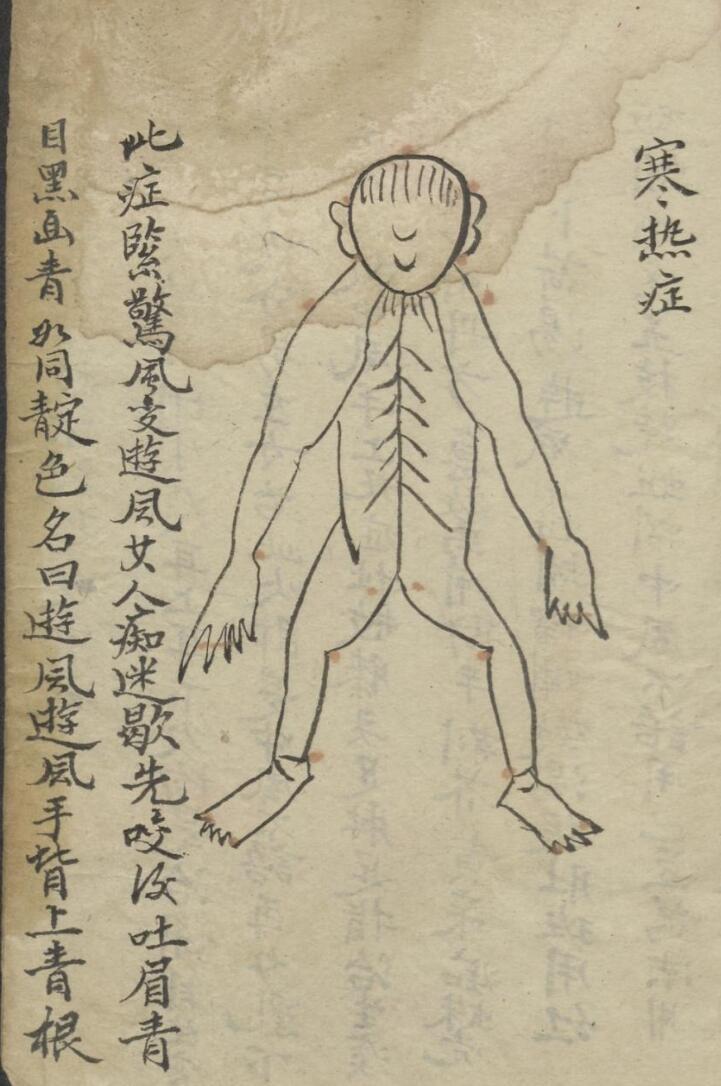 寒热症
此症緊驚風变遊风女人痴迷歇先咬後吐眉青
目黑面青如同靛色名曰遊风遊风手背上青根